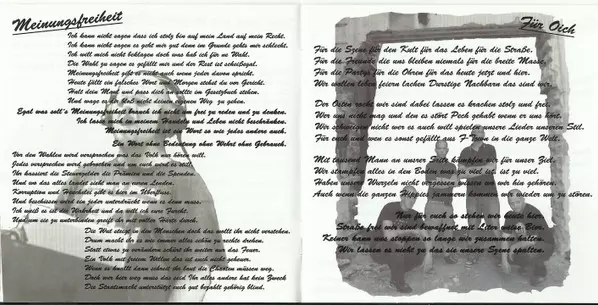 Meinungsfreiheit
Ich kann nicht sagen dass ich stolz bin auf mein Land auf mein Recht.
Ich kann nicht sagen es geht mir gut denn im Grunde gehts mir schlecht.
Ich will mich nicht beklagen doch was hab ich für ne Wahl.
Die Wahl zu sagen es gefällt mir und der Rest ist scheißegal.
Meinungsfreiheit gibt es nicht auch wenn jeder davon spricht.
Heute fällt ein falsches Wort und Morgen stehst du vor Gericht.
Halt dein Maul und pass dich an sollte im Gesetzbuch stehen.
Und wage es nicht deinen eigenen Weg zu gehen.
Egal was soll's Meinungsfreiheit brauch ich nicht um frei zu reden und zu denken.
Ich lasse mich in meinem Handeln und Leben nicht beschränken.
Meinungsfreiheit ist ein Wort so wie jedes andere auch.
Ein Wort ohne Bedeutung ohne Wehrt ohne Gebrauch.
Vor den Wahlen wird versprochen was das Volk nur hören will.
Jedes versprechen wird gebrochen und um euch wird es still.
Ihr kassiert die Steuergelder die Prämien und die Spenden.
Und wo das alles landet sieht man an vollen
Korruption und Heuchelei gibt es hier im Überfluss.
Und beschissen wird ein jeder unterdrückt wenn es dann muss.
Ich weiß es ist die Wahrheit und da will ich eure Furcht.
Die Wut steigt in den Menschen doch das wollt ihr nicht verstehen.
Drum macht ihr es wie immer alles schön zu rechte drehen.
Statt etwas zu verändern schürt ihr weiter nur das Feuer.
Ein Volk mit freiem Willen das ist euch nicht geheuer.
Wenn es knallt dann schreit ihr laut die Chaoten müssen weg.
Doch wer hier weg muss das seid Ihr alles andere hat kein Zweck
Die Staatsmacht unterstützt euch gut bezahlt gehörig blind.
Für Dich
Für die Szene für den Kult für das Leben für die Straße.
Für die Freunde die uns bleiben niemals für die breite Masse.
Für die Partys für die Ohren für das heute jetzt und hier.
Wir wollen leben feiern lachen Durstige Nachbarn das sind wir.
Der Osten rockt wir sind dabei lassen es krachen stolz und frei.
Wer uns nicht mag und den es stört Pech gehabt wenn er uns hört.
Wir schweigen nicht wer es auch will spielen unsere Lieder unseren Stil.
Für euch und wem es sonst gefällt aus F-Town in die ganze Welt.
Mit tausend Mann an unsrer Seite kämpfen wir für unser Ziel.
Wir stampfen alles in den Boden was zu viel ist ist zu viel.
Haben unsere Wurzeln nicht vergessen wissen wo wir hin gehören.
Auch wenn die ganzen Hippies jammern kommen wir wieder um zu stören.
Nur für euch so stehen wir heute hier.
Straße frei wir sind bewaffnet mit Liter weise Bier.
Keiner kann uns stoppen so lange wir zusammen halten.
Wir lassen es nicht zu das sie unsere Szene spalten.